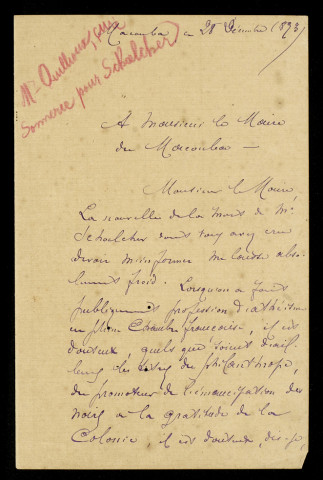 Macouba le 28 Décembre 1893
Mr
sonnerie pour Schœlcher
A Monsieur le Maire
du Macouba —
Monsieur le Maire,
La nouvelle de la mort de Mr
Schœlcher dont vous avez cru
devoir m'informer me laisse abso
lument froid. Lorsqu'on a fait
publiquement profession d'athéisme
en pleine Chambre française, il est
douteux, quels que soient d'ail
leurs les titres du philanthrope,
du promoteur de l'émancipation des
noirs à la gratitude de la
Colonie il est douteux, dis-je,